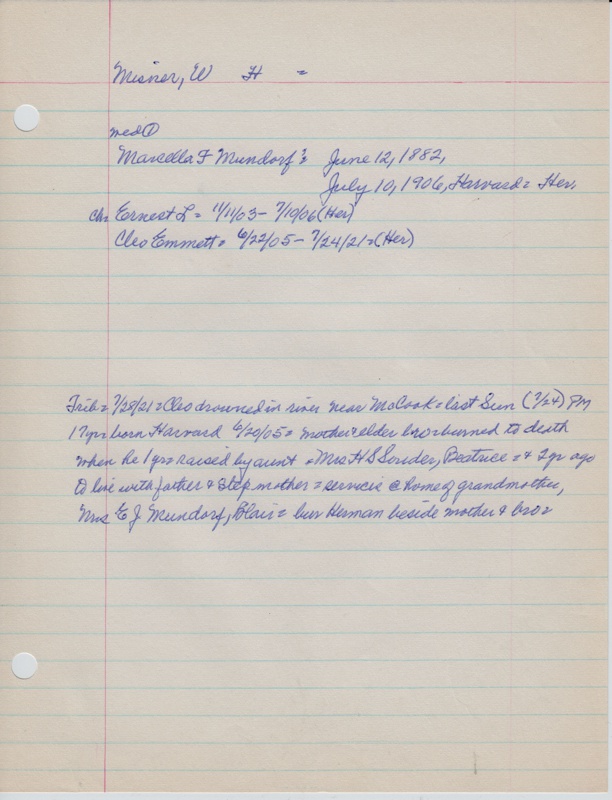 Misner, W H =
med①
Marcella F Mundorf = June 12, 1882,
July 10, 1906, Harvard = Her.
ch. Ernest L = 11/11/03 - 7/10/06 (Her)
Cleo Emmett = 6/22/05 - 7/24/21 = (Her)
Trib = 7/28/21 = Cleo drowned in river near McCook = last Sun (7/24) PM
17 yrs born Harvard 6/20/05 = mother & elder bro burned to death
when he 1 yr = raised by aunt = Mrs H S Souder, Beatrice = & 2 yr ago
to live with father & step mother = service @ home of grandmother,
Mrs E J Mundorf, Blair = bur Herman beside mother & bro